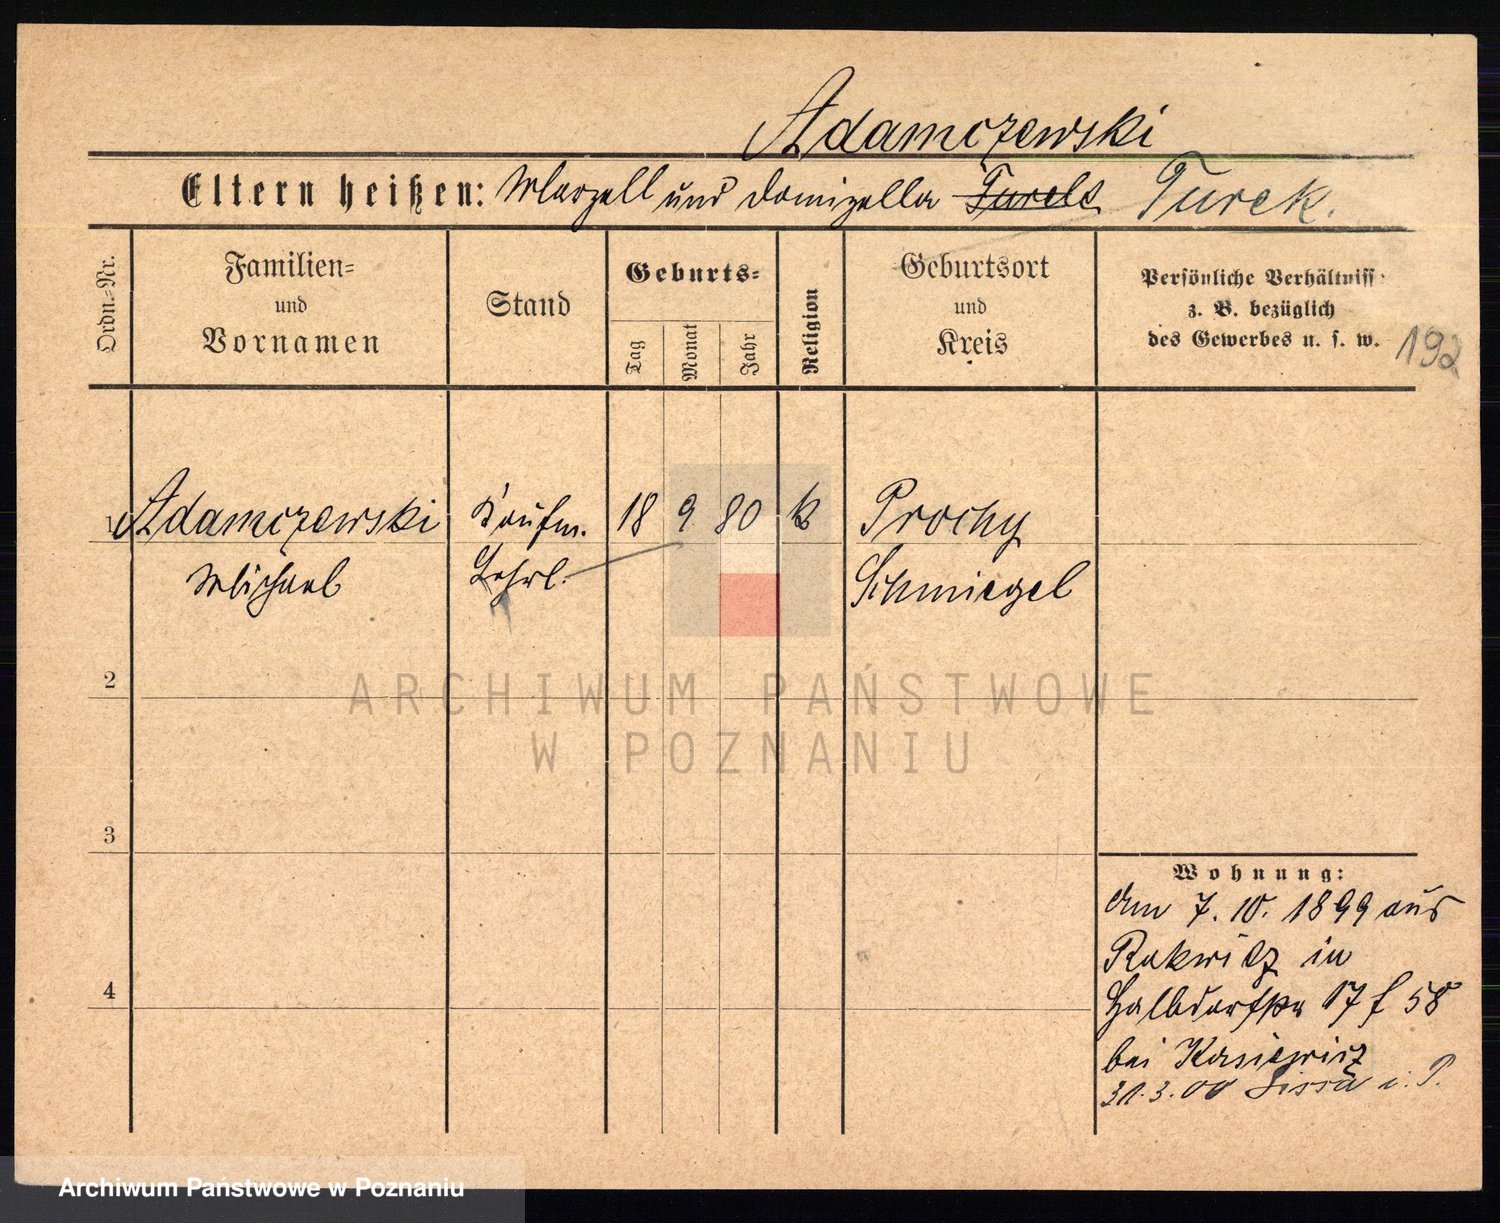 Adamczewski
Eltern heißen: Marzell und Domizella Turek Turek.
Ordn.-Nr.
Familien-
und
Vornamen
Stand
Geburts-
Tag
Monat
Jahr
Religion
Geburtsort
und
Kreis
Persönliche Verhältniss
z. B. bezüglich
des Gewerbes u. s. w.
192
1 Adamczewski Kaufm. 18 9 80 k Prochy
Michael Lehrl. Schmiegel
2
ARCHIWUM PAŃSTWOWE
W POZNANIU
3
Wohnung:
Am 7. 10. 1899 aus
Rakwitz in
4
Halbdorfstr 17 f 58
bei
31.3.00 Lissa i. P.
Archiwum Państwowe w Poznaniu